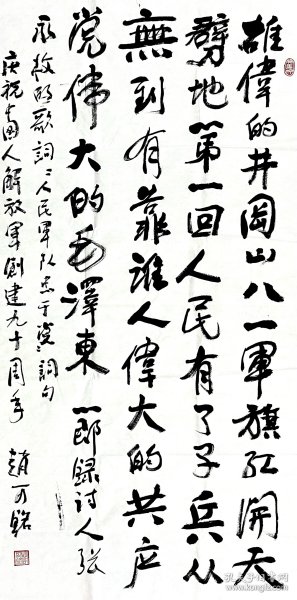 雄偉的井岡山八一軍旗紅開天
劈地第一回人民有了子兵从
無到有靠誰人偉大的共产
党偉大的毛澤東 一郎録討人張
永枚的歌詞人民軍队忠于党詞句
庆祝中国人解放軍創建九十周年 趙可銘